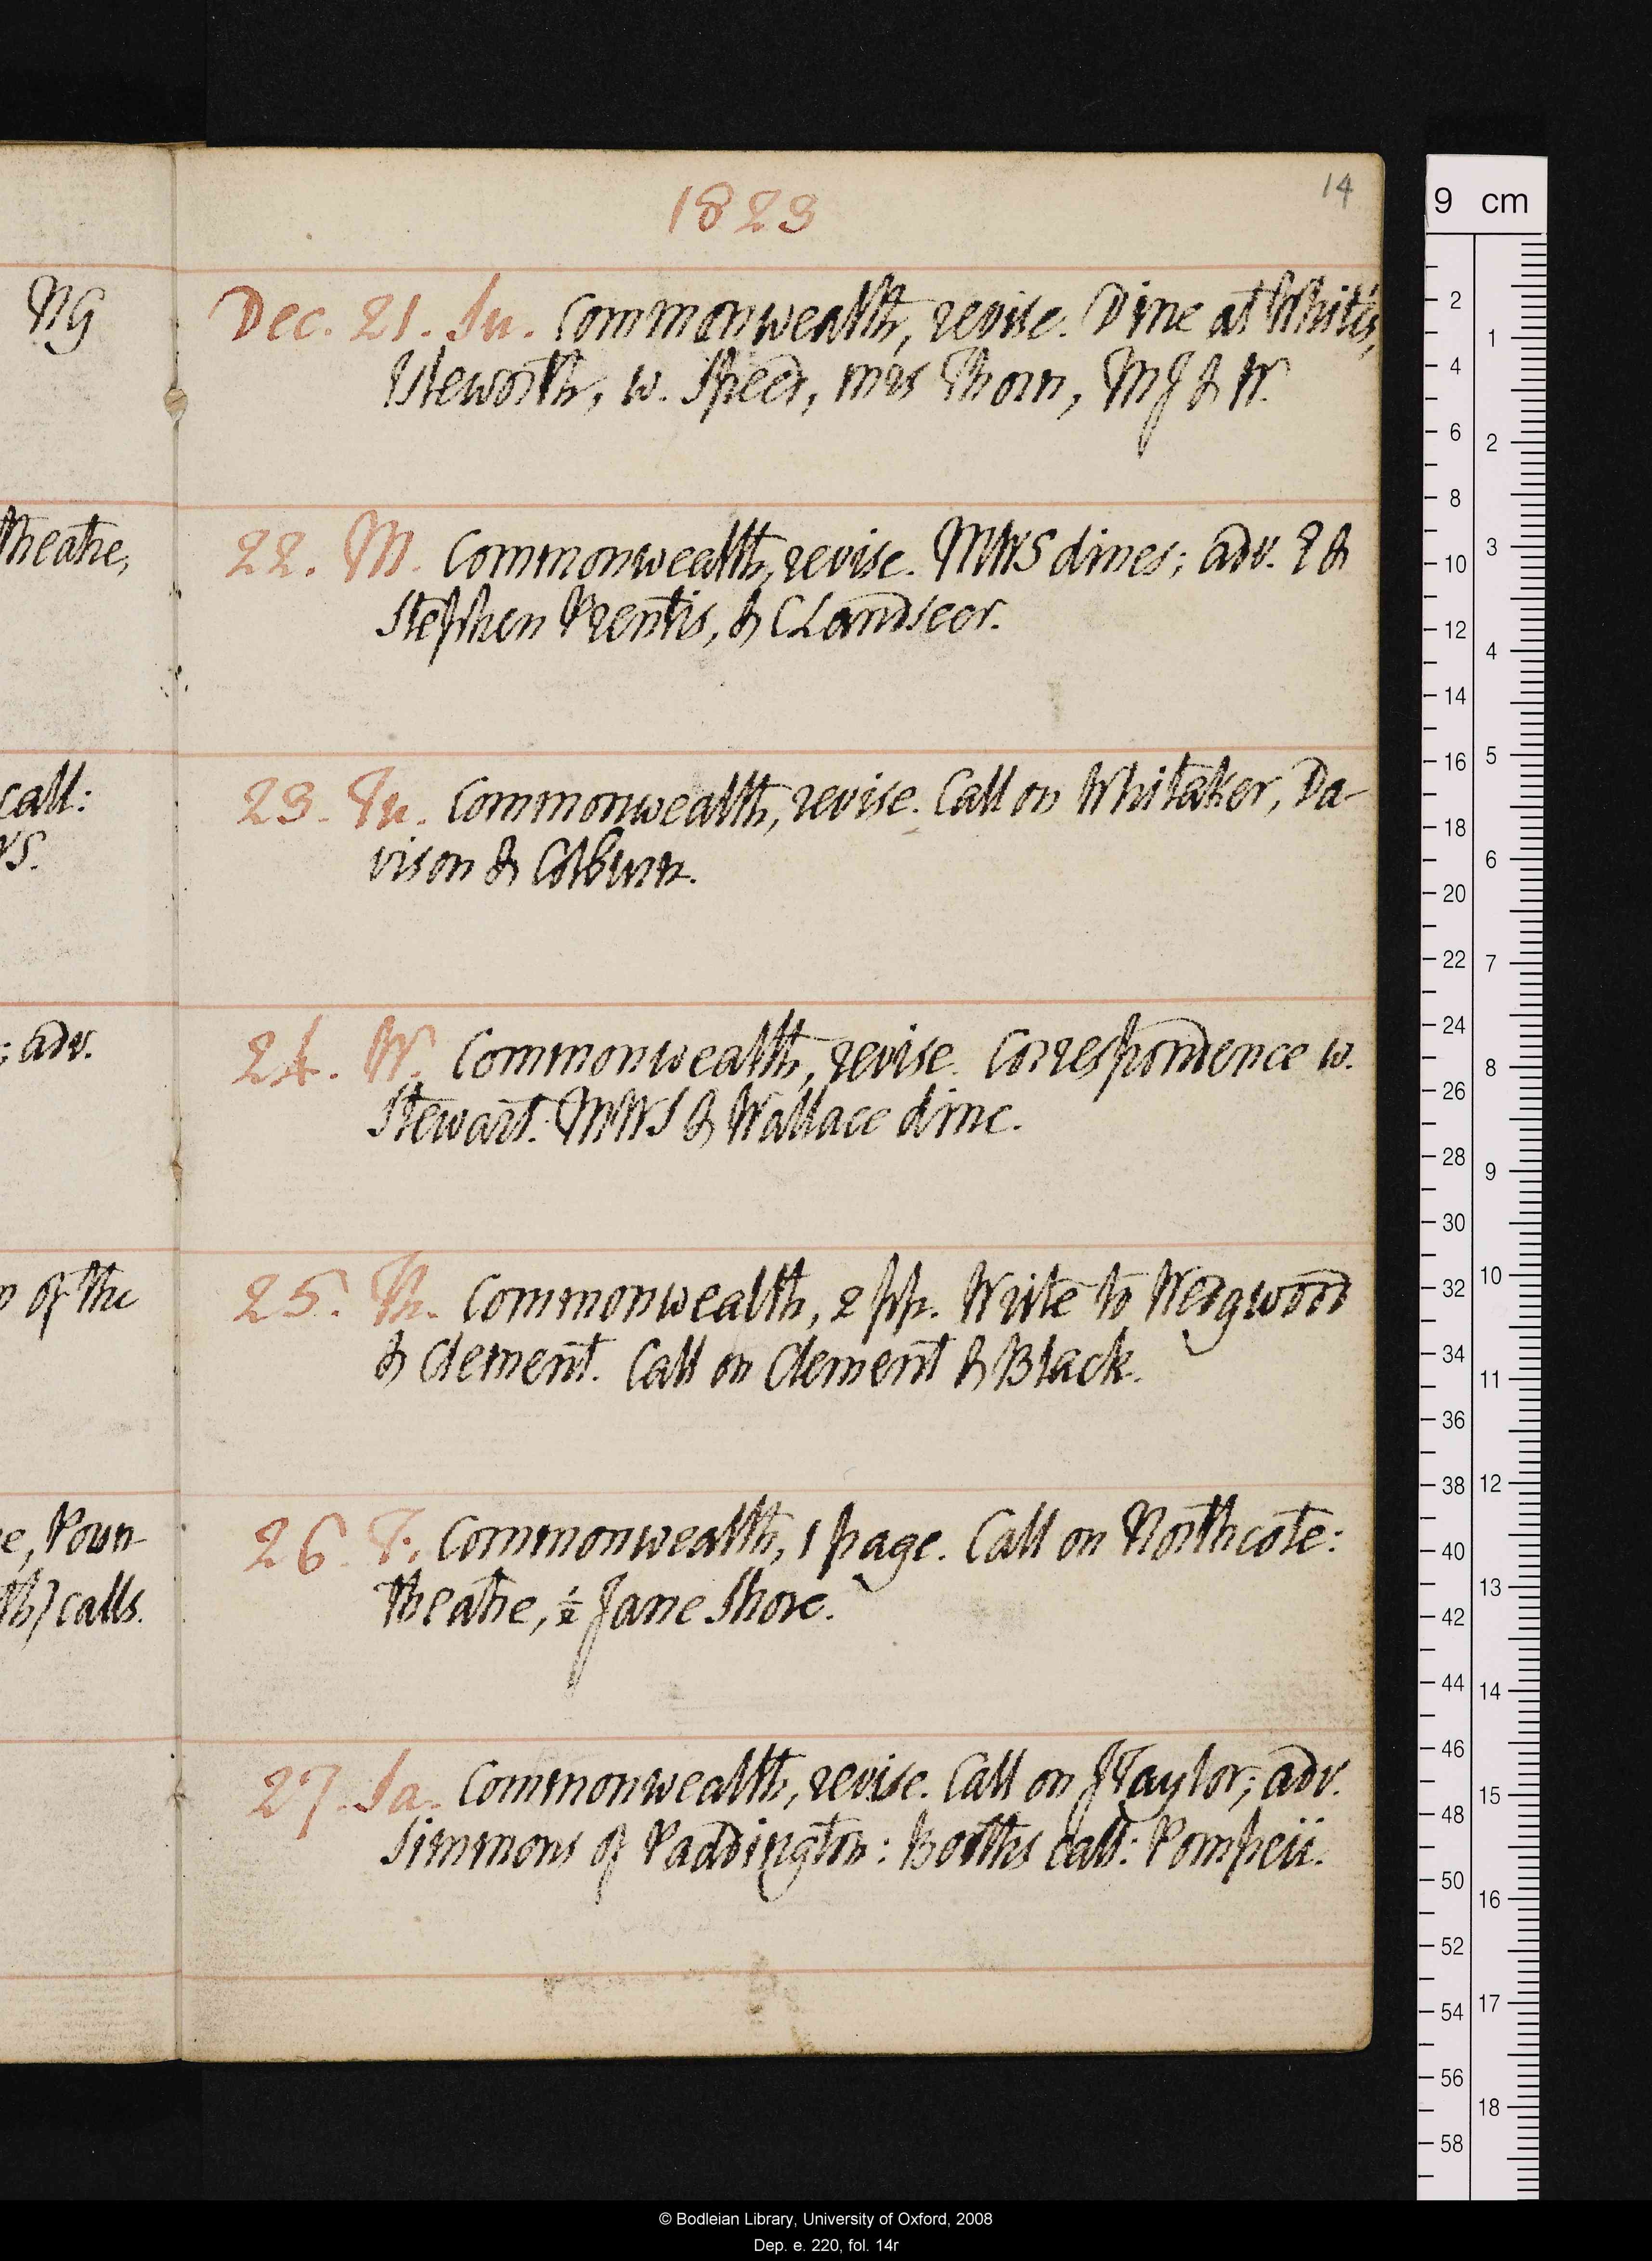 14
1823
NG
Dec. 21. Su. Commonwealth, revise. Dine at White's,
Isleworth, w. Speed, mrs Thorn, MJ & W.
theatre,
22. M. Commonwealth, revise. MWS dines; adv. &
Stephen Prentis, & CLandseer.
call:
23. Tu. Commonwealth, revise. Call on Whitaker, Da-
vison & Colburn.
; adv.
24. W. Commonwealth, revise. Correspondence w.
Stewart. MWS & Wallace dine.
of the
25. Th. Commonwealth, 2 pp. Write to Wedgwood
& Clement. Call on Clement & Black.
26. F. Commonwealth, 1 page. Call on Northcote:
calls.
theatre, ½ Jane Shore.
27. Sa. Commonwealth, revise. Call on JTaylor; adv.
Simmons of Paddington: Booths call: Pompeii.
9 cm
2
4
6
8
10
12
14
16
18
20
22
24
26
28
30
32
34
36
38
40
42
44
46
48
50
52
54
56
58
1
2
3
4
5
6
7
8
9
10
11
12
13
14
15
16
17
18
© Bodleian Library, University of Oxford, 2008
Dep. e. 220, fol. 14r